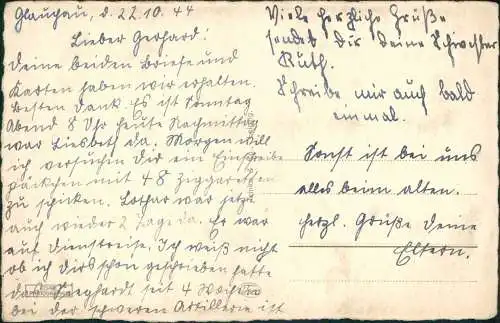 Glauchau, d. 22.10.44
Lieber Gerhard!
Deine beiden Briefe und
Karten haben wir erhalten.
Besten Dank. Es ist Sonntag
Abend 8 Uhr heute Nachmittag
war Liesbeth da. Morgen will
ich versuchen Dir ein Einschreibe
päckchen mit 48 Ziggaretten
zu schicken. Lothar war jetzt
auch wieder 2 Tage da. Er war
auf Dienstreise. Ich weiß nicht
ob ich dirs schon geschrieben hatte
seit 4 Wochen
bei der schweren Artillerie ist
Viele herzliche Grüße
sendet Dir Deine Schwester
Ruth.
Schreibe mir auch bald
einmal.
Sonst ist bei uns
alles beim alten.
herzl. Grüße Deine
Eltern.